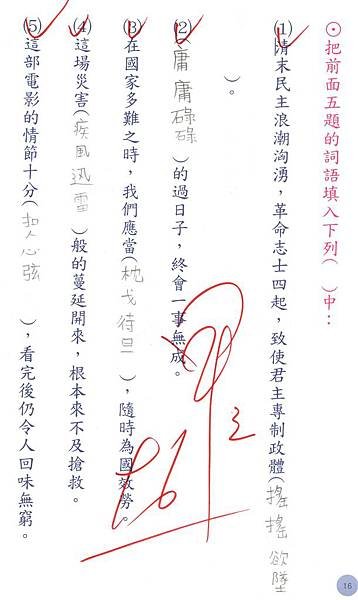 ⊙把前面五題的詞語填入下列( )中：
⑴清末民主浪潮洶湧，革命志士四起，致使君主專制政體(搖搖欲墜
)。
⑵(庸庸碌碌)的過日子，終會一事無成。
⑶在國家多難之時，我們應當(枕戈待旦)，隨時為國效勞。
⑷這場災害(疾風迅雷)般的蔓延開來，根本來不及搶救。
⑸這部電影的情節十分(扣人心弦)，看完後仍令人回味無窮。
16